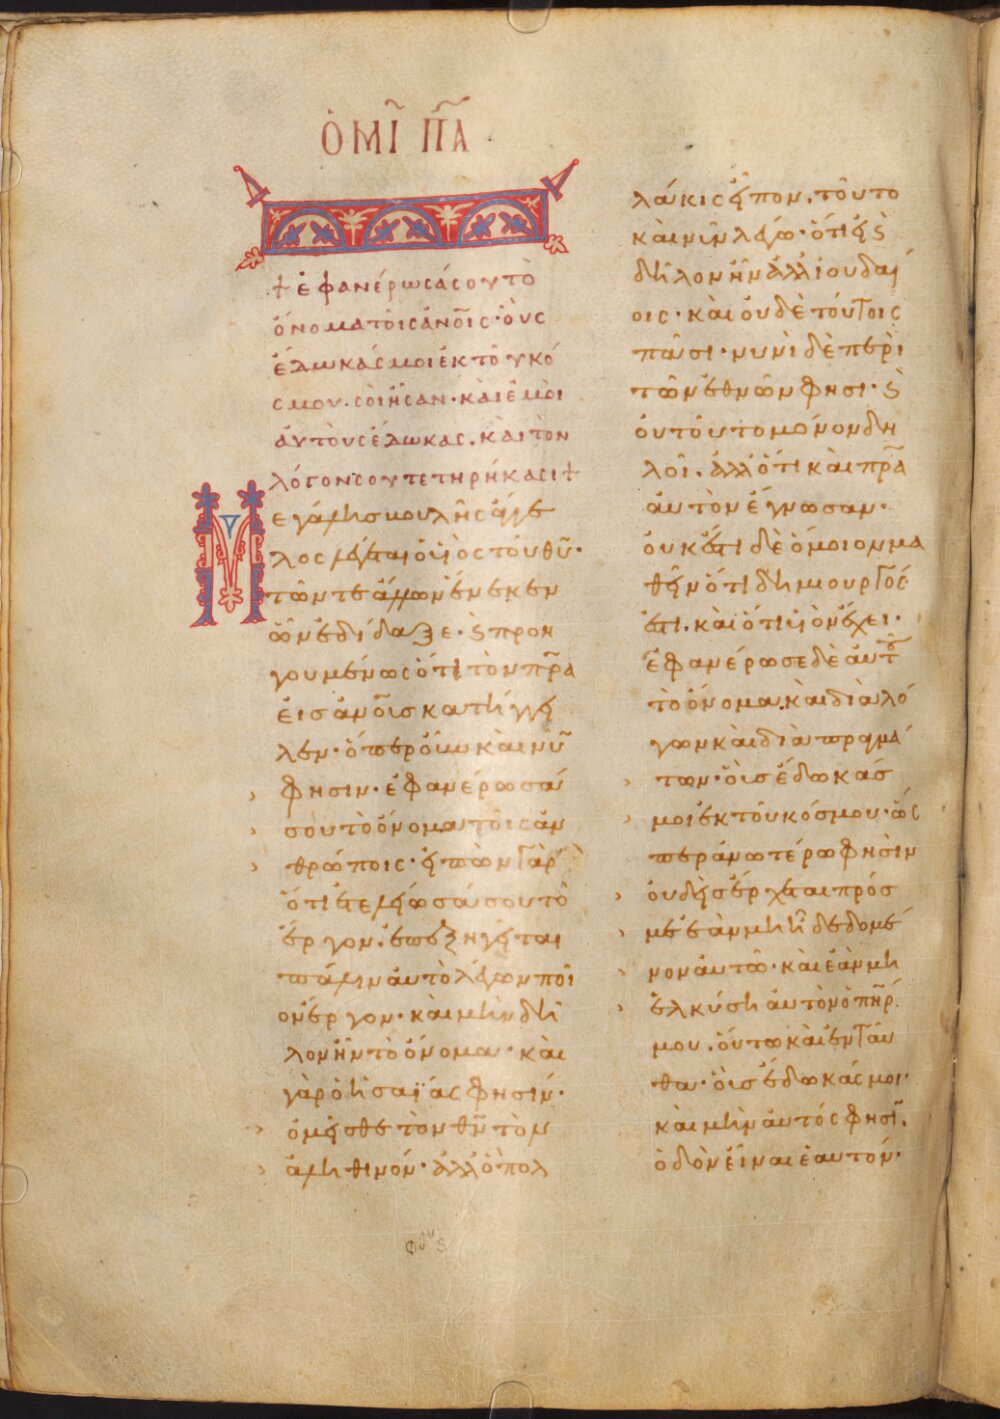 ὉΜΙ͂ Π͂Α
+ ἐφανέρωσά σου τὸ
ὄνομα τοῖς ἀν͞οις· οὓς
ἔδωκάς μοι ἐκ τοῦ κό
σμου. σοὶ ἦσαν· καὶ ἐμοὶ
αὐτοὺς ἔδωκας. καὶ τὸν
λόγον σου τετηρήκασι +
Μεγάλης βουλῆς ἄγγε
λος λέγεται ὁ υἱὸς τοῦ θ͞υ·
τῶν τε ἄλλων ἕνεκεν
ὧν ἐδίδαξε· ϗ προη
γουμένως ὅτι τὸν π͞ρα
εἰς ἀν͞οις κατήγγει
λεν· ὅπερ οὖν καὶ νῦ͞
φησιν· ἐφανέρωσά
σου τὸ ὄνομα τοῖς ἀν
θρώποις· εἰπὼν γὰρ
ὅτι ἐτελείωσά σου τὸ
ἔργον. ἐπεξηγεῖται
πάλιν αὐτὸ λέγων ποῖ
ον ἔργον· καὶ μὴν δῆ
λον ἦν τὸ ὄνομα· καὶ
γὰρ ὁ ἡσαΐας φησίν·
ὀμεῖσθε τὸν θ͞ν τὸν
ἀληθινόν· ἀλλ' ὃ πολ
λάκις εἶπον. τοῦτο
καὶ νῦν λέγω· ὅτι εἰ ϗ
δῆλον ἦν ἀλλ' ἰουδαί
οις· καὶ οὐδὲ τούτοις
πᾶσι· νυνὶ δὲ περὶ
τῶν ἐθνῶν φησι· ϗ
οὐ τοῦτο μόνον δη
λοῖ. ἀλλ' ὅτι καὶ π͞ρα
αὐτὸν ἔγνωσαν·
οὐκ ἔστι δὲ ὅμοιον μα
θεῖν ὅτι δημιουργός
ἐστι. καὶ ὅτι υἱὸν ἔχει·
ἐφανέρωσε δὲ αὐτοῦ
τὸ ὄνομα καὶ διὰ λό
γων καὶ διὰ πραγμά
των· οὓς ἔδωκάς
μοι ἐκ τοῦ κόσμου· ὥς
περ ἀνωτέρω φησὶν
οὐδεὶς ἔρχεται πρός
με ἐὰν μὴ ᾖ δεδομέ
νον αὐτῶ· καὶ ἐὰν μὴ
ἑλκύση αὐτὸν ὁ π͞ηρ
μου. οὕτω καὶ ἐνταῦ
θα· οὓς ἔδωκάς μοι·
καὶ μὴν αὐτός φησῖ͞.
ὁδὸν εἶναι ἑαυτόν·